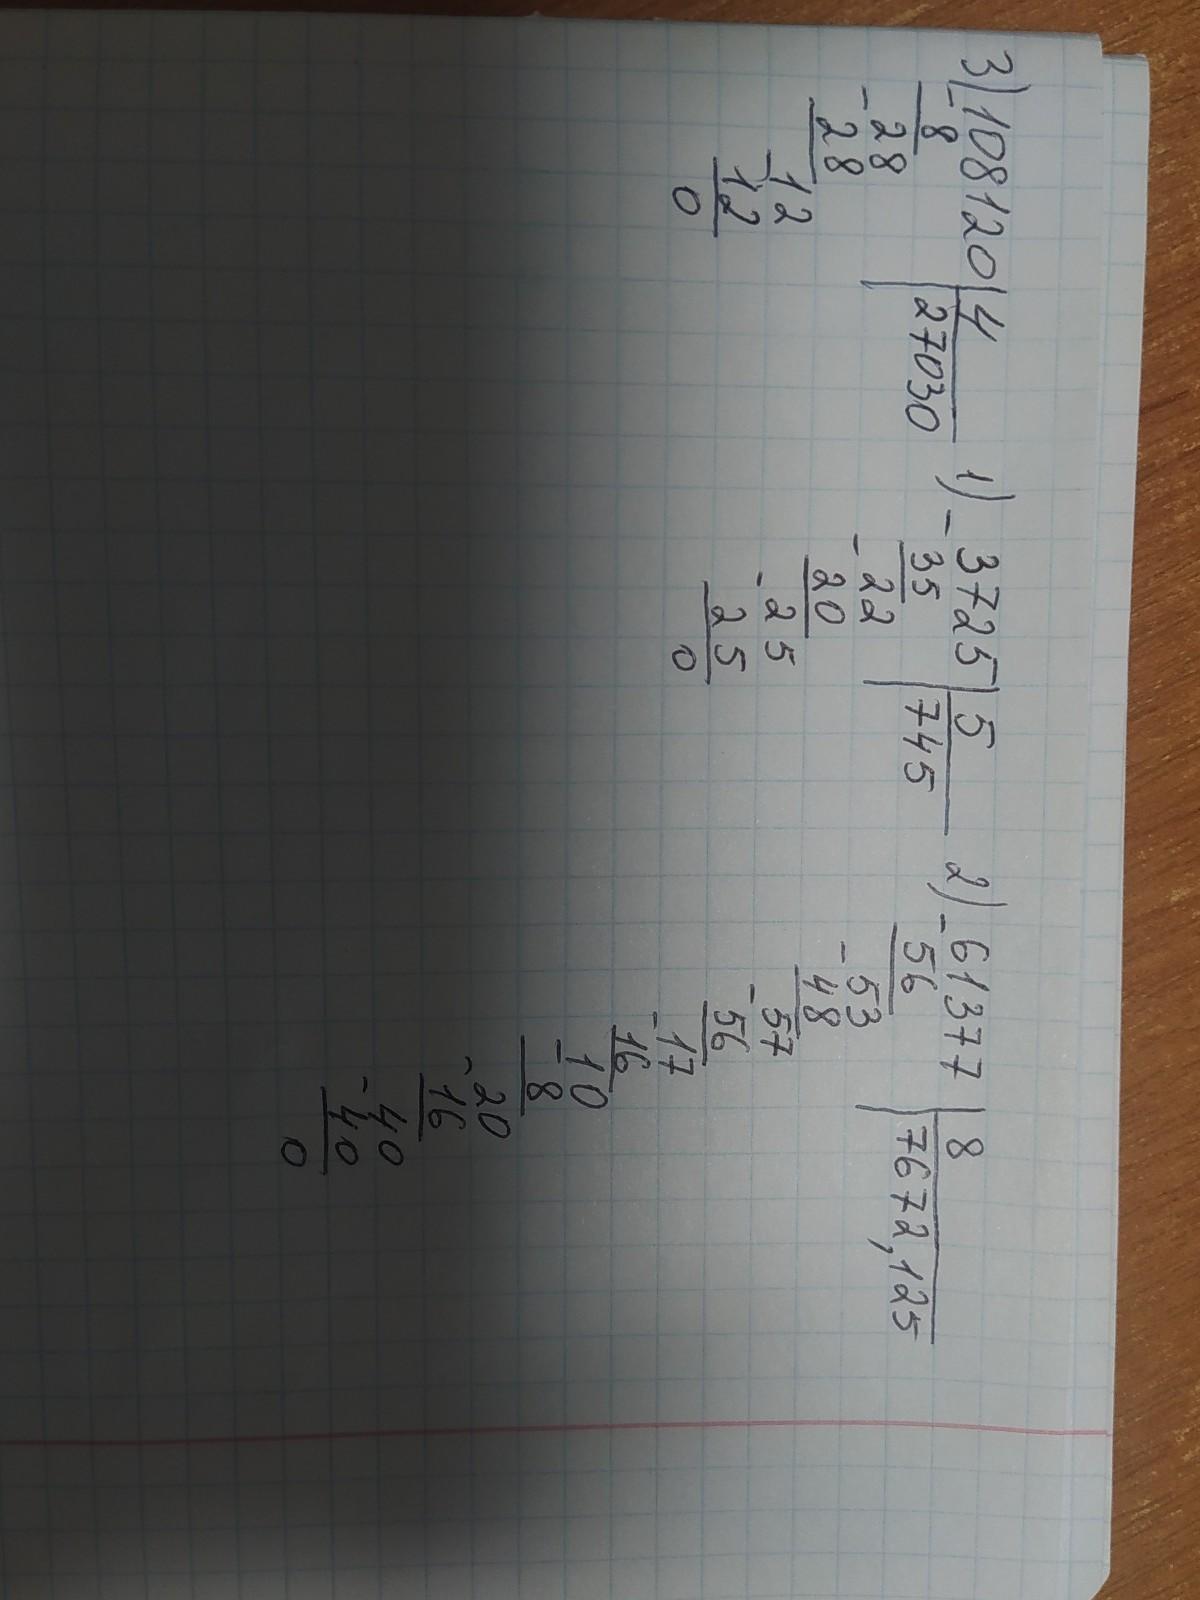 3) 108120 | 4
- 8
27030
- 28
28
- 12
12
0
1) - 3725 | 5
35
745
- 22
20
- 25
25
0
2) - 61377 | 8
56
7672,125
- 53
48
- 57
56
- 17
16
- 10
8
- 20
16
- 40
40
0